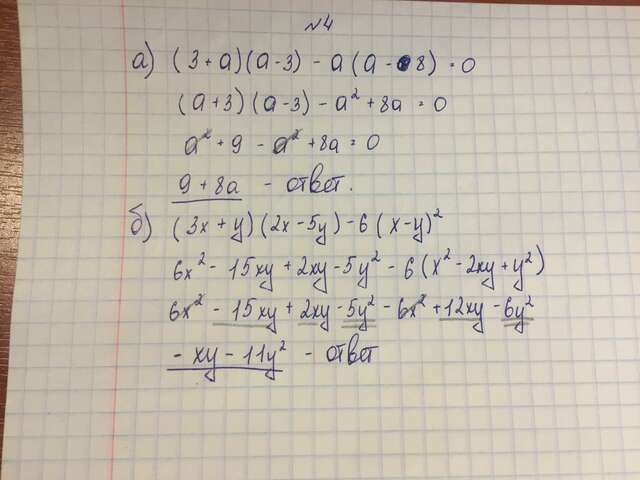 №4
а) (3+a)(a-3) - a(a-8) = 0
(a+3)(a-3) - a² + 8a = 0
a² + 9 - a² + 8a = 0
9 + 8a - ответ.
б) (3x+y)(2x-5y) - 6(x-y)²
6x² - 15xy + 2xy - 5y² - 6(x² - 2xy + y²)
6x² - 15xy + 2xy - 5y² - 6x² + 12xy - 6y²
- xy - 11y² - ответ